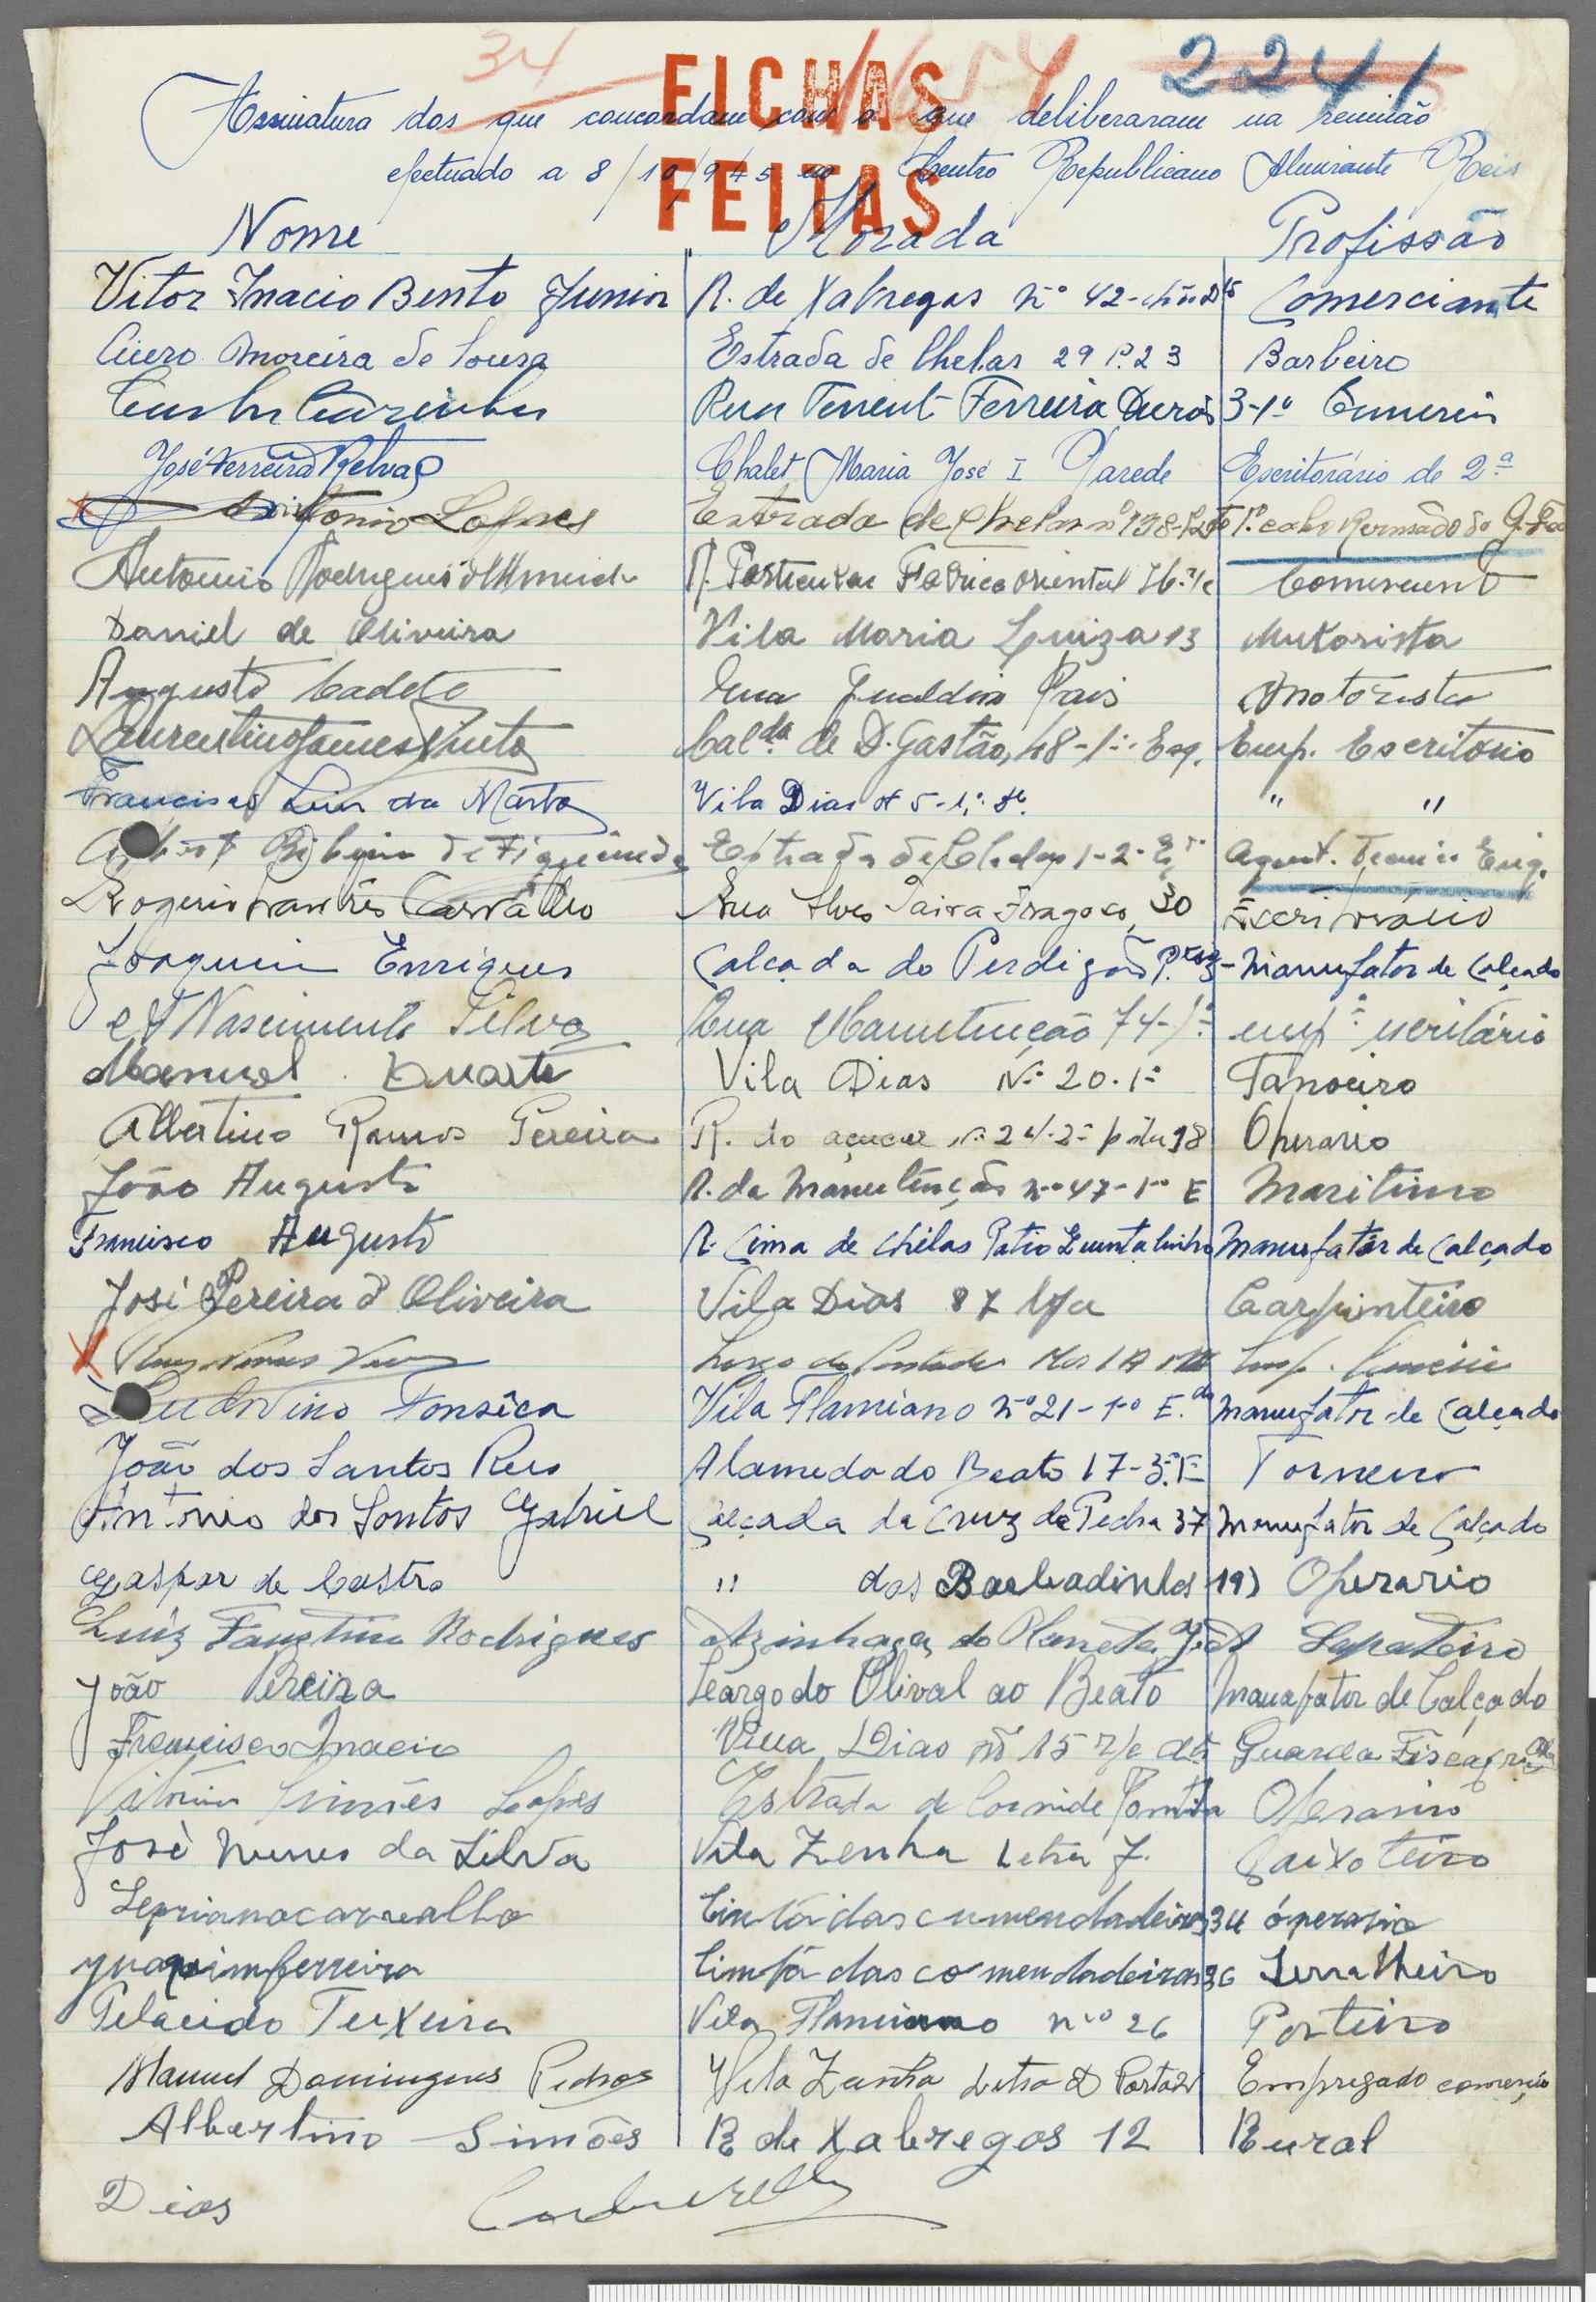 34 1654 2241
FICHAS
Assinatura dos que concordam com o que deliberaram na reunião
efectuado a 8/10/945 no Centro Republicano Almirante Reis
FEITAS
Nome Morada Profissão
Vitor Inacio Bento Junior R. de Xabregas nº 42- Comerciante
Cicero Moreira de Sousa Estrada de Chelas 29 P. 23 Barbeiro
Rua Tenent Ferreira Durão 3-1º
José Ferreira Relvas Chalet Maria José I Parede Escritorário de 2ª
Antonio Lopes Estrada de Chelas nº 138- 1º cabo Reformado da G.
Antonio Rodrigues d'Almeida R. Particular Fabrica Oriental Comerciante
Daniel de Oliveira Vila Maria Luiza 13 Mutorista
Augusto Cadete Rua Gualdim Pais Motorista
Laurentino Gomes Pinto Calçdª de D. Gastão, 48-1º Esq. Emp. Escritório
Francisco Luis da Marta Vila Dias nº 5-1º " "
Ribeiro de Figueiredo Estrada de Chelas 1-2- Agent. Tecnico Eng.
Rogerio Carvalho Rua Alves Paiva Fragoso, 30 Escriturário
Joaquim Enriques Calçada do Perdigão Manufator de Calçado
Nascimento Silva Rua Manutenção 74-1º empº escritário
Manuel Duarte Vila Dias Nº 20.1º Tanoeiro
Albertino Ramos Pereira R. do açucar nº 24-2º porta 98 Operario
João Augusto R. da Manutenção nº 47-1º E Maritimo
Francisco Augusto R. Cima de Chelas Patio Quintalinho Manufator de Calçado
José Pereira d'Oliveira Vila Dias 87 Carpinteiro
Ludovino Fonsêca Vila Flamiano nº 21-1º E. Manufator de Calçado
João dos Santos Reis Alameda do Beato 17-3º E Torneiro
Antonio dos Santos Gabriel Calçada da Cruz da Pedra 37 Manufator de Calçado
Gaspar de Castro " dos Barbadinhos 19) Operario
Luiz Faustino Rodrigues Azinhaga do Planeta Sapateiro
João Pereira Leargo do Olival ao Beato Manafator de Calçado
Francisco Inacio Viua Dias nº 15 r/c Guarda Fiscal
Simões Lopes Estrada de Operario
José Nunes da Silva Vila Zenha Letra J. Caixoteiro
Seprianocarvalho Cintádascumendadeiras 34 óperario
yuaqimferreira Cimtá dascomendadeiras 36 Serralheiro
Pelacido Teixeira Vila Flamiano nº 26 Porteiro
Manuel Domingues Pedros Vila Zenha Letra D Porta Empregado comercio
Albertino Simões R de Xabregos 12 Rural
Dias